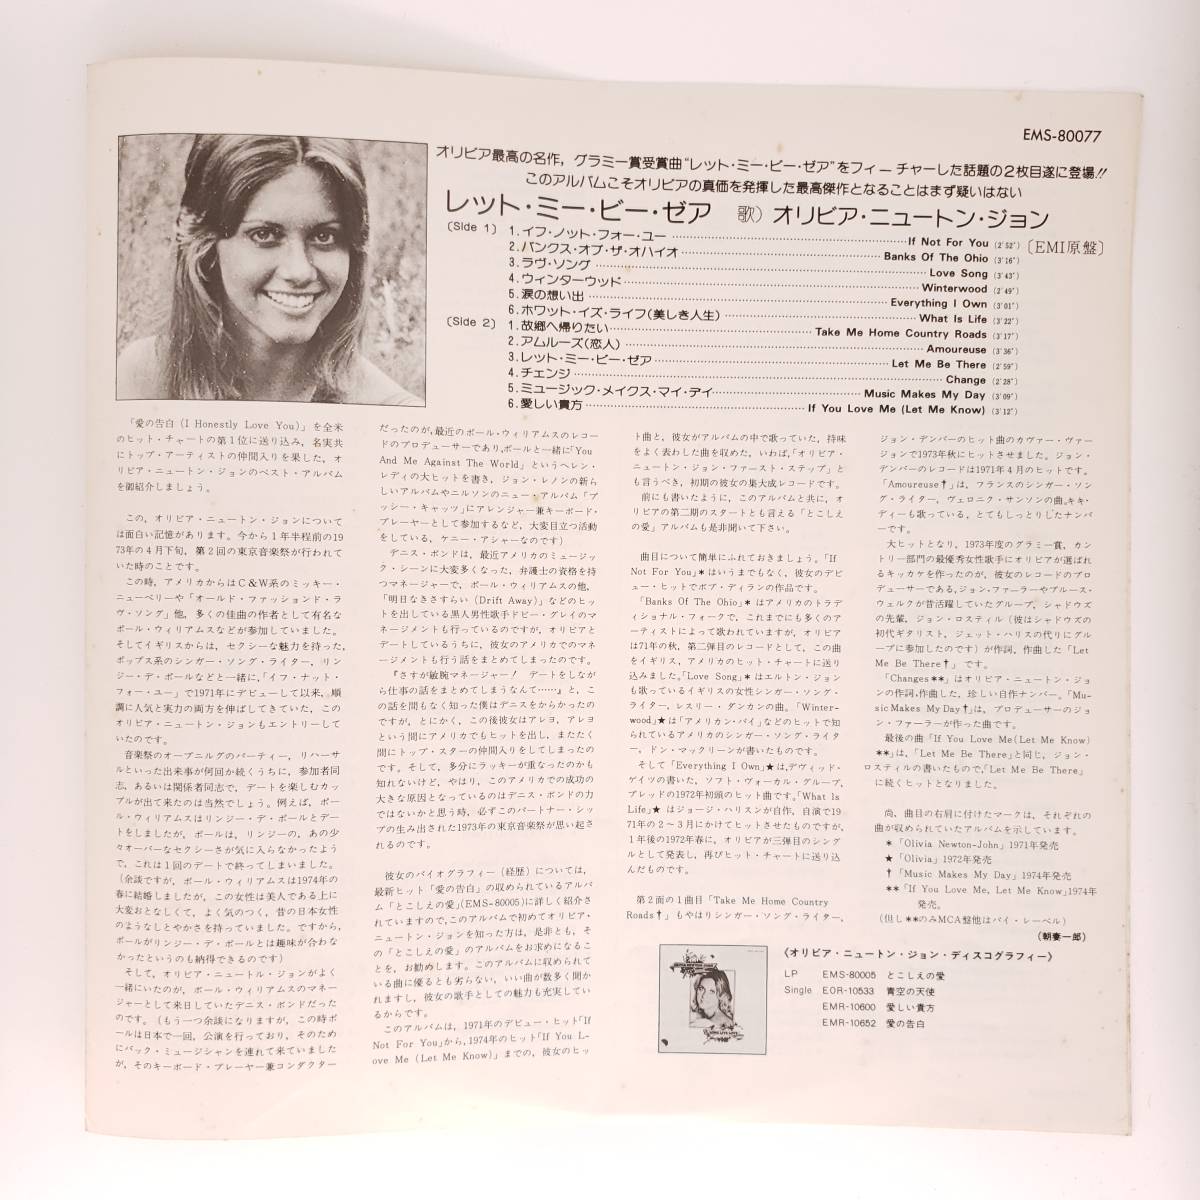 EMS-80077
オリビア最高の名作，グラミー賞受賞曲“レット・ミー・ビー・ゼア”をフィーチャーした話題の2枚目遂に登場!!
このアルバムこそオリビアの真価を発揮した最高傑作となることはまず疑いはない
レット・ミー・ビー・ゼア 歌）オリビア・ニュートン・ジョン
〔Side 1〕 1.イフ・ノット・フォー・ユー If Not For You (2'52") 〔EMI原盤〕
2.バンクス・オブ・ザ・オハイオ Banks Of The Ohio (3'16")
3.ラヴ・ソング Love Song (3'43")
4.ウィンターウッド Winterwood (2'49")
5.涙の想い出 Everything I Own (3'01")
6.ホワット・イズ・ライフ(美しき人生) What Is Life (3'22")
〔Side 2〕 1.故郷へ帰りたい Take Me Home Country Roads (3'17")
2.アムルーズ(恋人) Amoureuse (3'36")
3.レット・ミー・ビー・ゼア Let Me Be There (2'59")
4.チェンジ Change (2'28")
5.ミュージック・メイクス・マイ・デイ Music Makes My Day (3'09")
6.愛しい貴方 If You Love Me (Let Me Know) (3'12")
「愛の告白 (I Honestly Love You)」を全米
のヒット・チャートの第1位に送り込み，名実共
にトップ・アーティストの仲間入りを果した，オ
リビア・ニュートン・ジョンのベスト・アルバム
を御紹介しましょう。
この，オリビア・ニュートン・ジョンについて
は面白い記憶があります。今から1年半程前の19
73年の4月下旬，第2回の東京音楽祭が行われて
いた時のことです。
この時，アメリカからはC&W系のミッキー・
ニューベリーや「オールド・ファッションド・ラ
ヴ・ソング」他，多くの佳曲の作者として有名な
ポール・ウィリアムスなどが参加していました。
そしてイギリスからは，セクシーな魅力を持った，
ポップス系のシンガー・ソング・ライター，リン
ジー・デ・ポールなどと一緒に，「イフ・ナット・
フォー・ユー」で1971年にデビューして以来，順
調に人気と実力の両方を伸ばしてきていた，この
オリビア・ニュートン・ジョンもエントリーして
いたのです。
音楽祭のオープニルグのパーティー，リハーサ
ルといった出来事が何回か続くうちに，参加者同
志，あるいは関係者同志で，デートを楽しむカッ
プルが出て来たのは当然でしょう。例えば，ポー
ル・ウィリアムスはリンジー・デ・ポールとデー
トをしましたが，ポールは，リンジーの，あの少
々オーバーなセクシーさが気に入らなかったよう
で，これは1回のデートで終ってしまいました。
(余談ですが，ポール・ウィリアムスは1974年の
春に結婚しましたが，この女性は美人である上に
大変おとなしくて，よく気のつく，昔の日本女性
のようなしとやかさを持っていました。ですから，
ポールがリンジー・デ・ポールとは趣味が合わな
かったというのも納得できるのです)
そして，オリビア・ニュートル・ジョンがよく
一緒にいたのが，ポール・ウィリアムスのマネー
ジャーとして来日していたデニス・ボンドだった
のです。(もう一つ余談になりますが，この時ポ
ールは日本で一回，公演を行っており，そのため
にバック・ミュージシャンを連れて来ていました
が，そのキーボード・プレーヤー兼コンダクター
だったのが，最近のポール・ウィリアムスのレコー
ドのプロデューサーであり，ポールと一緒に「You
And Me Against The World」というヘレン・
レディの大ヒットを書き，ジョン・レノンの新ら
しいアルバムやニルソンのニュー・アルバム「プ
ッシー・キャッツ」にアレンジャー兼キーボード・
プレーヤーとして参加するなど，大変目立つ活動
をしている，ケニー・アシャーなのです)
デニス・ボンドは，最近アメリカのミュージッ
ク・シーンに大変多くなった，弁護士の資格を持
つマネージャーで，ポール・ウィリアムスの他，
「明日なきさすらい (Drift Away)」などのヒッ
トを出している黒人男性歌手ドビー・グレイのマ
ネージメントも行っているのですが，オリビアと
デートしているうちに，彼女のアメリカでのマネ
ージメントも行う話をまとめてしまったのです。
『さすが敏腕マネージャー！ デートをしながら
仕事の話をまとめてしまうなんて……』と，こ
の話を間もなく知った僕はデニスをからかったの
ですが，とにかく，この後彼女はアレヨ，アレヨ
という間にアメリカでもヒットを出し，またたく
間にトップ・スターの仲間入りをしてしまったの
です。そして，多分にラッキーが重なったのかも
知れないけど，やはり，このアメリカでの成功の
大きな原因となっているのはデニス・ボンドの力
ではないかと思う時，必ずこのパートナー・シッ
プの生み出された1973年の東京音楽祭が思い起さ
れるのです。
彼女のバイオグラフィー(経歴)については，
最新ヒット「愛の告白」の収められているアルバ
ム「とこしえの愛」(EMS-80005)に詳しく紹介さ
れていますので，このアルバムで初めてオリビア・
ニュートン・ジョンを知った方は，是非とも，そ
の「とこしえの愛」のアルバムをお求めになるこ
とを，お勧めします。このアルバムに収められて
いる曲に優るとも劣らない，いい曲が数多く聞か
れますし，彼女の歌手としての魅力も充実してい
るからです。
このアルバムは，1971年のデビュー・ヒット「If
Not For You」から，1974年のヒット「If You L-
ove Me (Let Me Know)」までの，彼女のヒッ
ト曲と，彼女がアルバムの中で歌っていた，持味
をよく表わした曲を収めた，いわば，「オリビア・
ニュートン・ジョン・ファースト・ステップ」と
も言うべき，初期の彼女の集大成レコードです。
前にも書いたように，このアルバムと共に，オ
リビアの第二期のスタートとも言える「とこしえ
の愛」アルバムも是非聞いて下さい。
曲目について簡単にふれておきましょう。「If
Not For You」*はいうまでもなく，彼女のデビ
ュー・ヒットでボブ・ディランの作品です。
「Banks Of The Ohio」*はアメリカのトラデ
ィショナル・フォークで，これまでにも多くのア
ーティストによって歌われていますが，オリビア
は71年の秋，第二弾目のレコードとして，この曲
をイギリス，アメリカのヒット・チャートに送り
込みました。「Love Song」*はエルトン・ジョン
も歌っているイギリスの女性シンガー・ソング・
ライター，レスリー・ダンカンの曲。「Winter-
wood」★は「アメリカン・パイ」などのヒットで知
られているアメリカのシンガー・ソング・ライタ
ー，ドン・マックリーンが書いたものです。
そして「Everything I Own」★は，デヴィッド・
ゲイツの書いた，ソフト・ヴォーカル・グループ，
ブレッドの1972年初頭のヒット曲です。「What Is
Life」★はジョージ・ハリスンが自作，自演で19
71年の2～3月にかけてヒットさせたものですが，
1年後の1972年春に，オリビアが三弾目のシング
ルとして発表し，再びヒット・チャートに送り込
んだものです。
第2面の1曲目「Take Me Home Country
Roads†」もやはりシンガー・ソング・ライター，
ジョン・デンバーのヒット曲のカヴァー・ヴァー
ジョンで1973年秋にヒットさせました。ジョン・
デンバーのレコードは1971年4月のヒットです。
「Amoureuse†」は，フランスのシンガー・ソン
グ・ライター，ヴェロニク・サンソンの曲。キキ・
ディーも歌っている，とてもしっとりしたナンバ
ーです。
大ヒットとなり，1973年度のグラミー賞，カン
トリー部門の最優秀女性歌手にオリビアが選ばれ
るキッカケを作ったのが，彼女のレコードのプロ
デューサーである，ジョン・ファーラーやブルース・
ウェルクが昔活躍していたグループ，シャドウズ
の先輩，ジョン・ロスティル(彼はシャドウズの
初代ギタリスト，ジェット・ハリスの代りにグル
ープに参加したのです)が作詞，作曲した「Let
Me Be There†」です。
「Changes**」はオリビア・ニュートン・ジョ
ンの作詞，作曲した，珍しい自作ナンバー。「Mu-
sic Makes My Day†」は，プロデューサーのジョ
ン・ファーラーが作った曲です。
最後の曲「If You Love Me (Let Me Know)
**」は，「Let Me Be There」と同じ，ジョン・
ロスティルの書いたもので，「Let Me Be There」
に続くヒットとなりました。
尚，曲目の右肩に付けたマークは，それぞれの
曲が収められていたアルバムを示しています。
*「Olivia Newton-John」1971年発売
★「Olivia」1972年発売
†「Music Makes My Day」1974年発売
**「If You Love Me, Let Me Know」1974年
発売。
(但し**のみMCA盤他はパイ・レーベル)
(朝妻一郎)
《オリビア・ニュートン・ジョン・ディスコグラフィー》
LP EMS-80005 とこしえの愛
Single EOR-10533 青空の天使
EMR-10600 愛しい貴方
EMR-10652 愛の告白